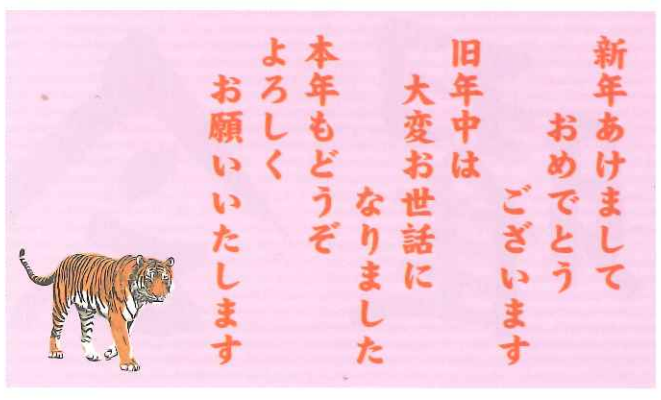 新年あけまして
おめでとう
ございます
旧年中は
大変お世話に
なりました
本年もどうぞ
よろしく
お願いいたします